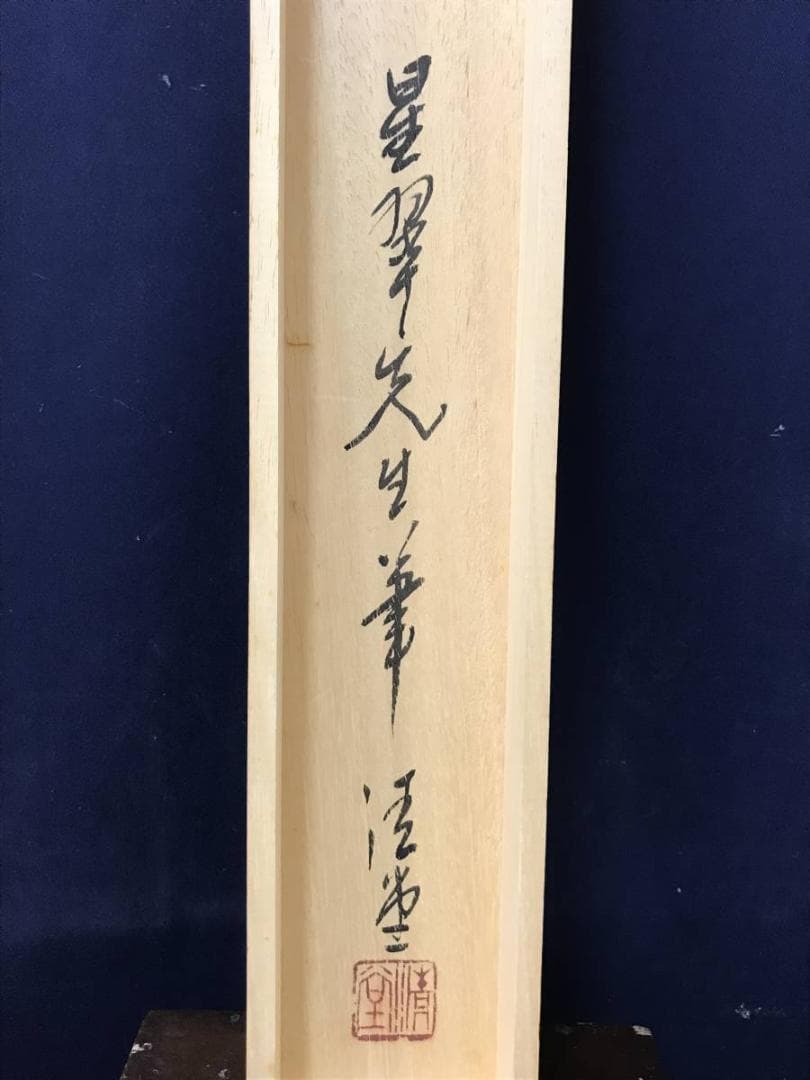 星翠先生筆 清堂
清堂